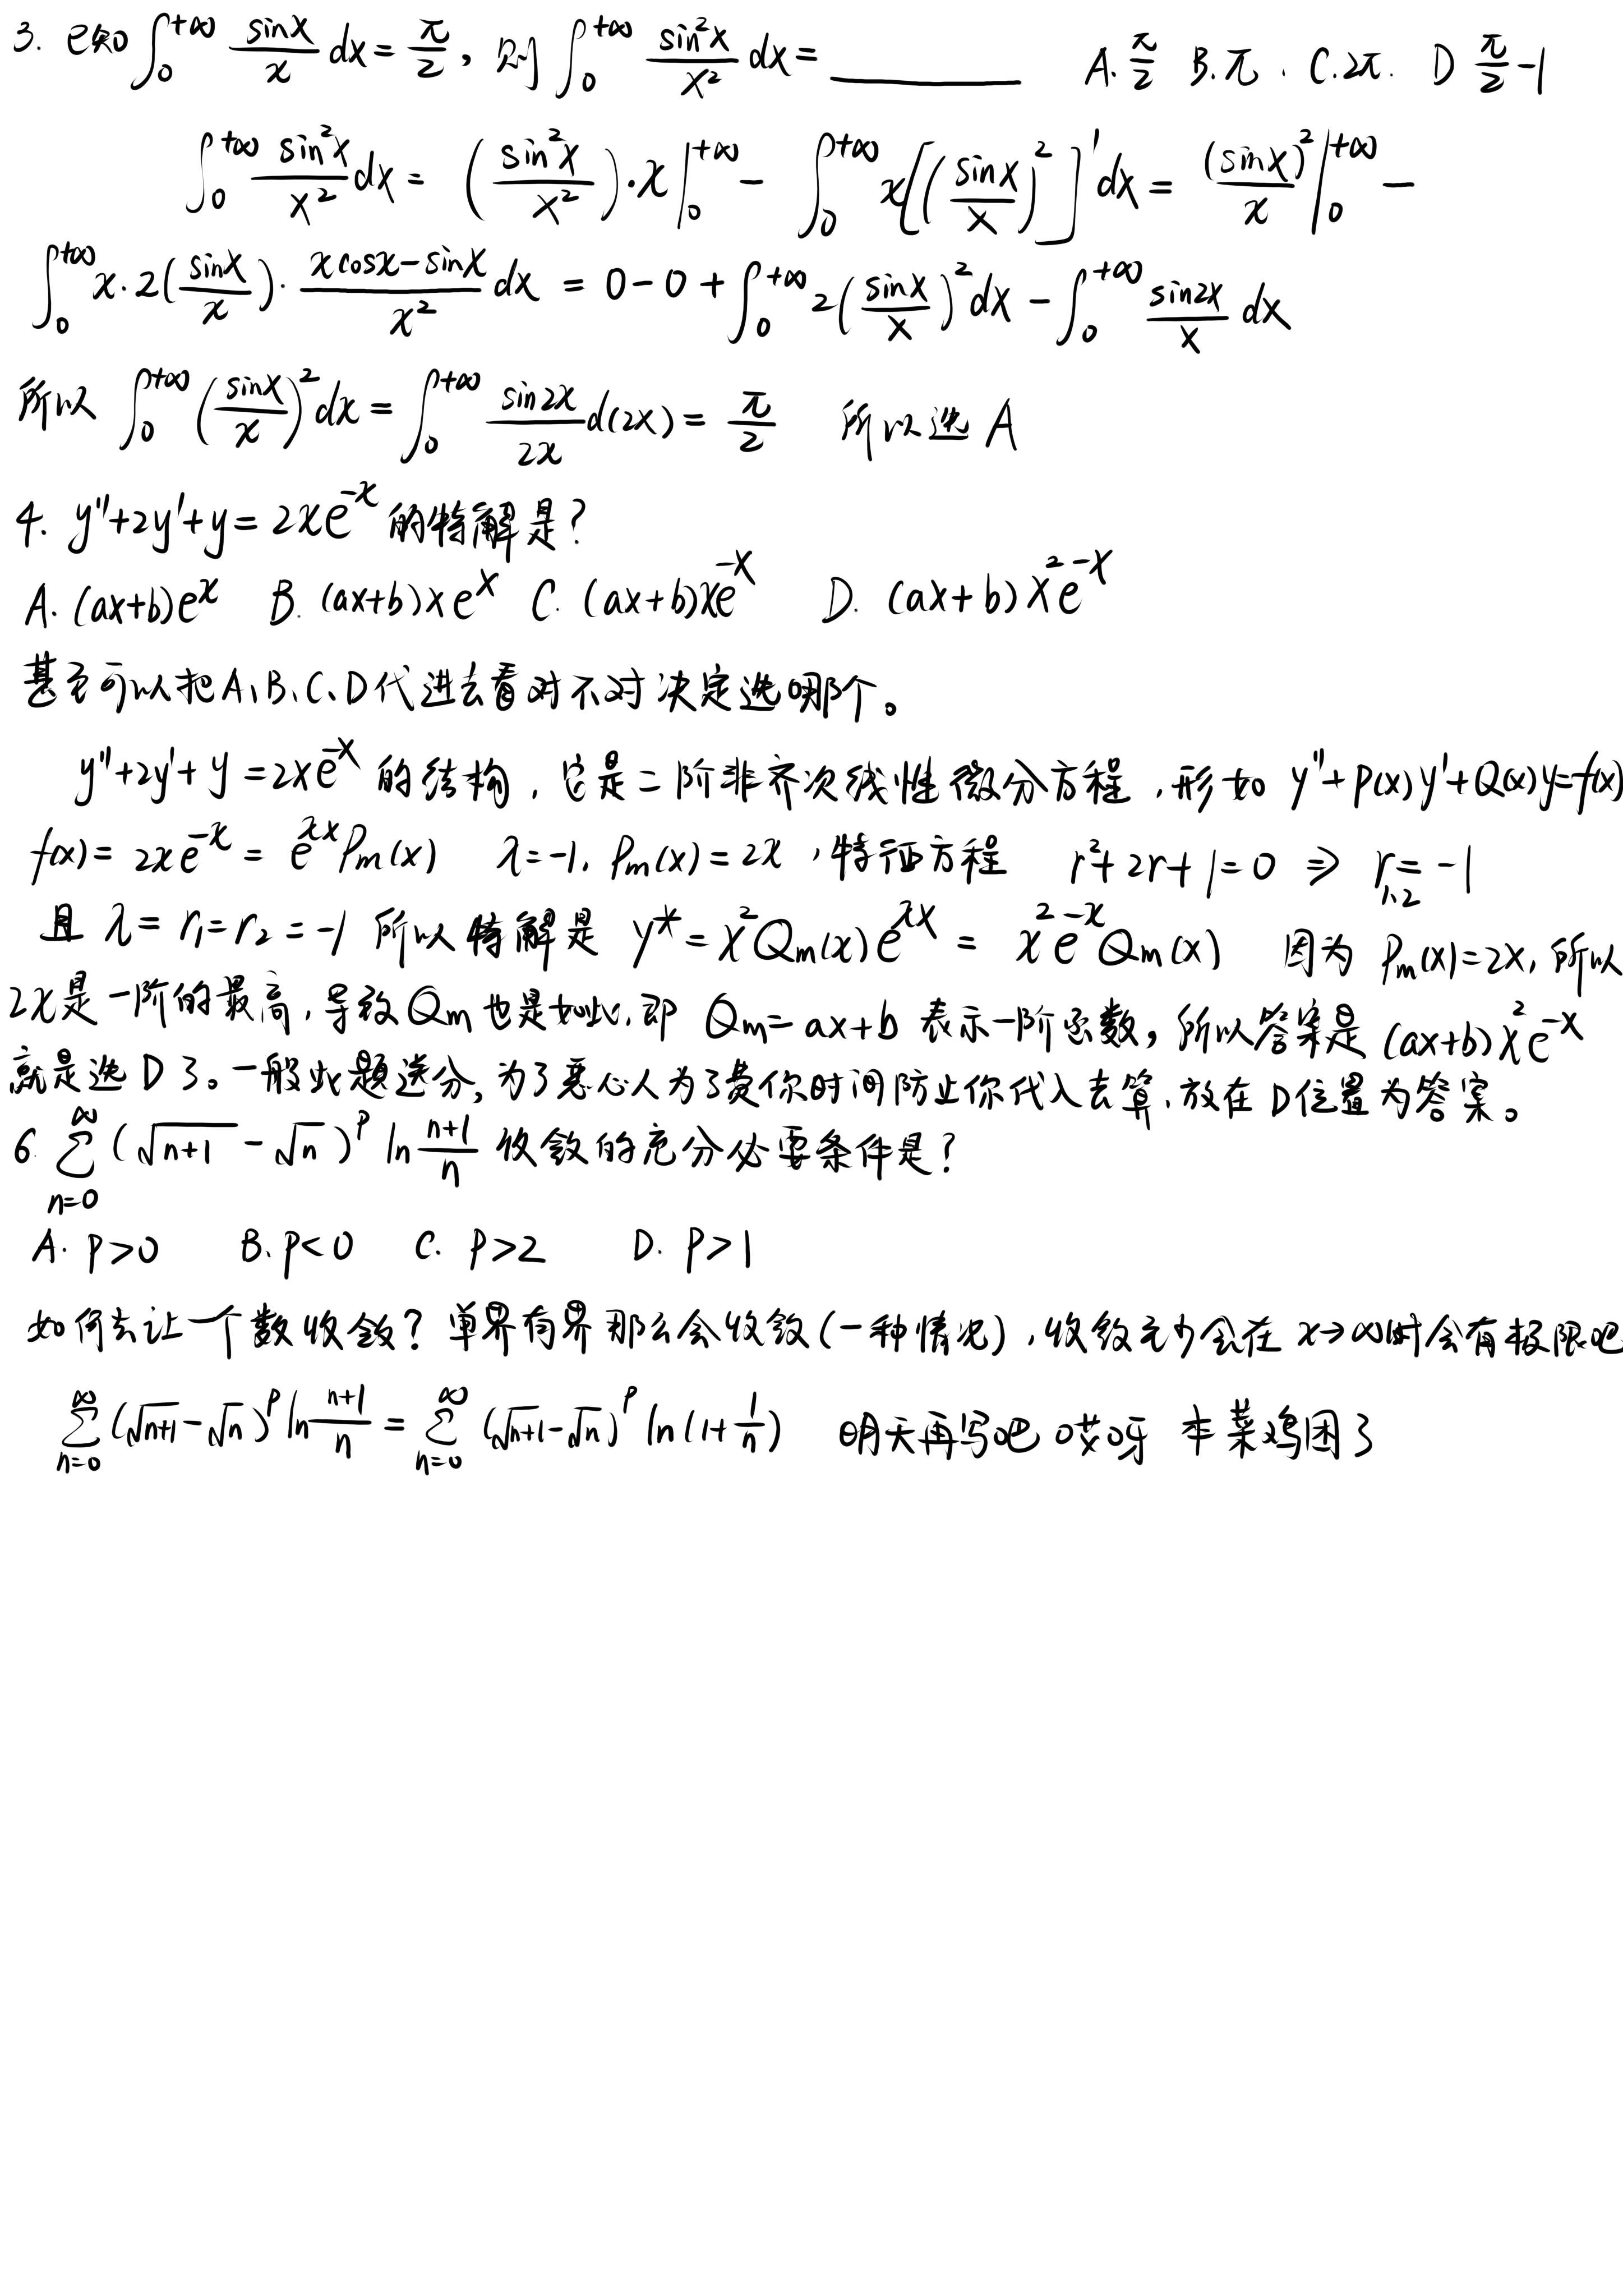 3. 已知∫₀^{+∞} sinx/x dx = π/2, 则∫₀^{+∞} sin²x/x² dx = ______ A. π/2 B. π. C. 2π. D π/2 -1
∫₀^{+∞} sin²x/x² dx = (sin²x/x²)·x|₀^{+∞} - ∫₀^{+∞} x[(sinx/x)²]′dx = (sinx)²/x|₀^{+∞} -
∫₀^{+∞} x·2(sinx/x)·(xcosx-sinx)/x² dx = 0-0+∫₀^{+∞} 2(sinx/x)²dx - ∫₀^{+∞} sin2x/x dx
所以 ∫₀^{+∞} (sinx/x)²dx = ∫₀^{+∞} sin2x/2x d(2x) = π/2 所以选A
4. y″+2y′+y = 2xe^{-x} 的特解是?
A. (ax+b)e^x B. (ax+b)xe^x C. (ax+b)xe^{-x} D. (ax+b)x²e^{-x}
甚至可以把A、B、C、D代进去看对不对决定选哪个。
y″+2y′+y = 2xe^{-x} 的结构, 它是二阶非齐次线性微分方程, 形如 y″+P(x)y′+Q(x)y=f(x)
f(x) = 2xe^{-x} = e^{λx}Pm(x) λ=-1, Pm(x)=2x, 特征方程 r²+2r+1=0 ⇒ r₁,₂=-1
且 λ=r₁=r₂=-1 所以特解是 y*=x²Qm(x)e^{λx} = x²e^{-x}Qm(x) 因为 Pm(x)=2x, 所以
2x是一阶的最高, 导致Qm也是如此, 即 Qm=ax+b 表示一阶函数, 所以答案是 (ax+b)x²e^{-x}
就是选D了。一般此题送分, 为了恶心人为了费你时间防止你代入去算, 放在D位置为答案。
6. ∑_{n=0}^{∞} (√(n+1) - √n)^p ln (n+1)/n 收敛的充分必要条件是?
A. p>0 B. p<0 C. p>2 D. p>1
如何去让一个数收敛? 单界有界那么会收敛(一种情况), 收敛至少会在 x→∞时会有极限吧
∑_{n=0}^{∞} (√(n+1)-√n)^p ln (n+1)/n = ∑_{n=0}^{∞} (√(n+1)-√n)^p ln(1+1/n) 明天再写吧 哎呀 本菜鸡困了